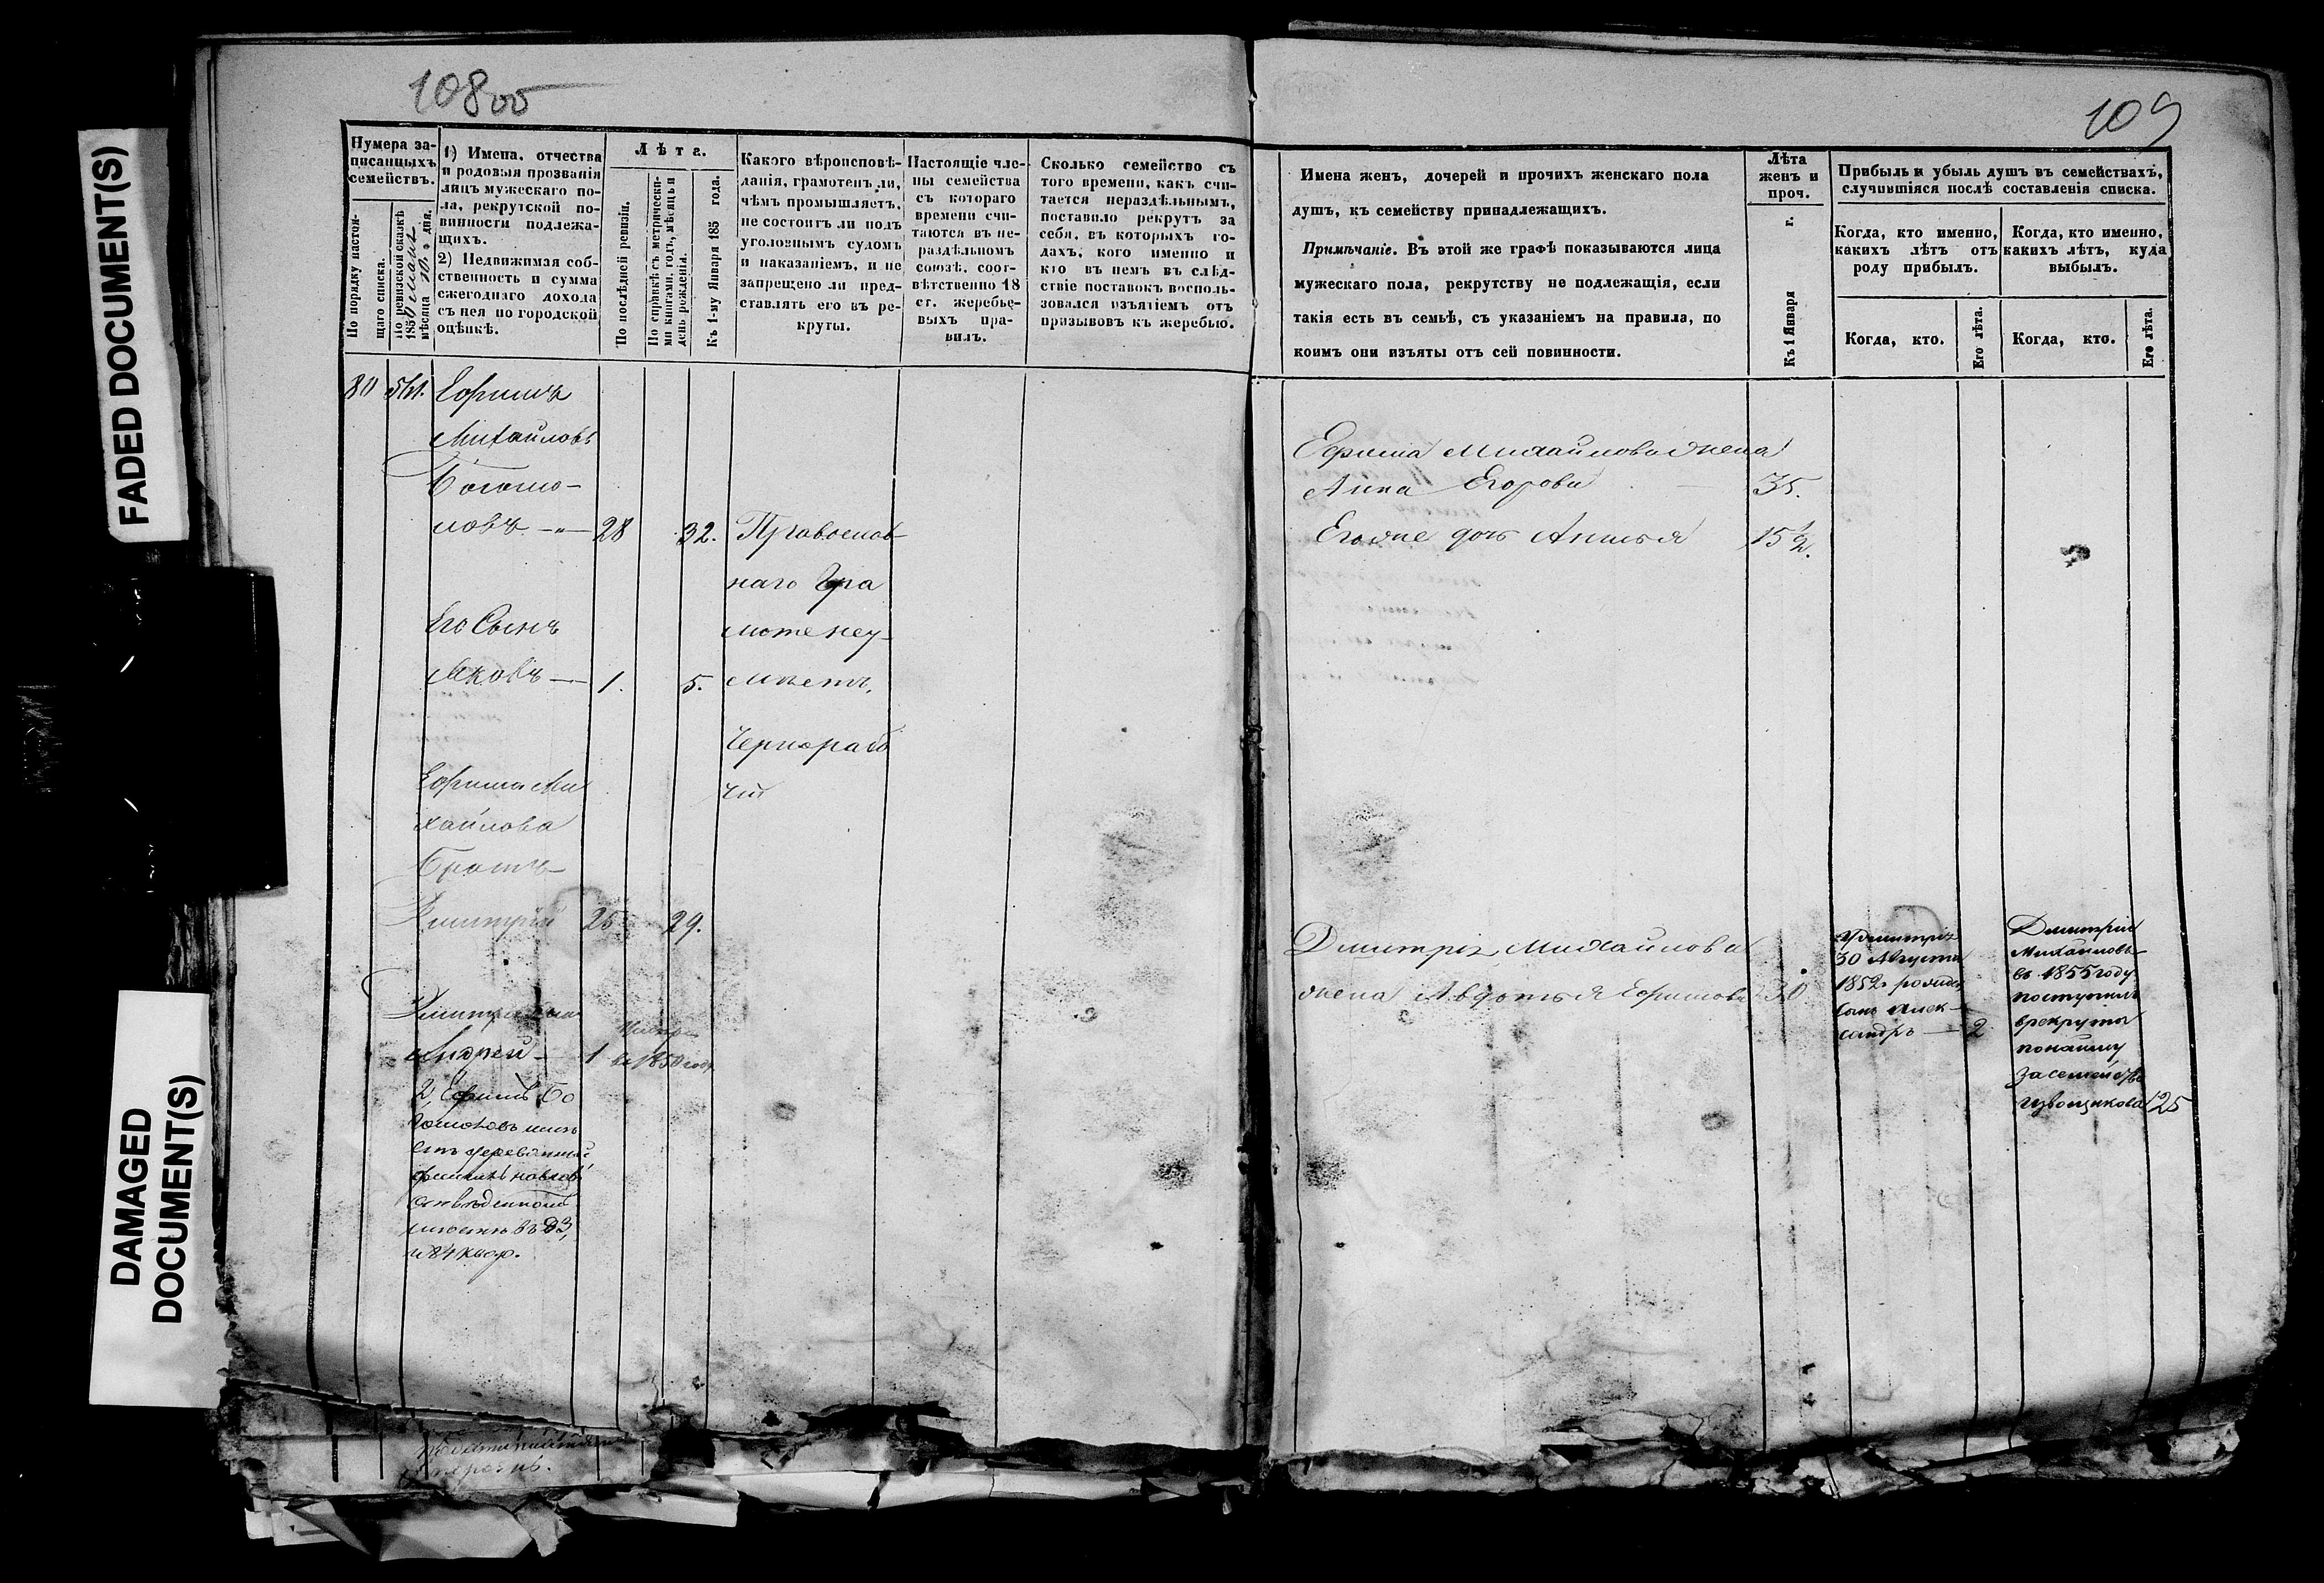 FADED DOCUMENT(S)
DAMAGED
DOCUMENT(S)
108об
Нумера за-
писанныхъ
семействъ.
По порядку настоя-
щаго списка.
По ревизской сказкѣ
1850
мѣсяца 10. дня.
1) Имена, отчества
и родовыя прозванія
лицъ мужескаго по-
ла, рекрутской по-
винности подлежа-
щихъ.
2) Недвижимая соб-
ственность и сумма
ежегоднаго дохода
съ нея по городской
оцѣнкѣ.
Лѣта.
По послѣдней ревизіи.
По справкѣ съ метрически-
ми книгами, годъ, мѣсяцъ и
день рожденія.
Къ 1-му Января 185 года.
Какого вѣроисповѣ-
данія, грамотенъ ли,
чѣмъ промышляетъ,
не состоитъ ли подъ
уголовнымъ судомъ
и наказаніемъ, и не
запрещено ли пред-
ставлять его въ ре-
круты.
Настоящіе чле-
ны семейства
съ котораго
времени счи-
таются въ не-
раздѣльномъ
союзѣ, соот-
вѣтственно 18
ст. жеребье-
выхъ пра-
вилъ.
Сколько семейство съ
того времени, какъ счи-
тается нераздѣльнымъ,
поставило рекрутъ за
себя, въ которыхъ го-
дахъ, кого именно и
кто въ немъ въ слѣд-
ствіе поставокъ восполь-
зовался изъятіемъ отъ
призывовъ къ жеребью.
80
Ефимъ
Михайловъ
Богомо-
ловъ — 28 32. Православ-
наго Гра
Его Сынъ моте неу-
Яковъ — 1. 5. мѣетъ,
Чернорабо
Ефима Ми чій
хайлова
Братъ
Дмитрій 25 29.
Андрей — 1 въ 1850 году
2, Ефимъ Бо
гомоловъ имѣ
етъ деревянный
въ 83,
и 84 квар.
109
Имена женъ, дочерей и прочихъ женскаго пола
душъ, къ семейству принадлежащихъ.
Примѣчаніе. Въ этой же графѣ показываются лица
мужескаго пола, рекрутству не подлежащія, если
такія есть въ семьѣ, съ указаніемъ на правила, по
коимъ они изъяты отъ сей повинности.
Лѣта
женъ и
проч.
Къ 1 Января г.
Прибыль и убыль душъ въ семействахъ,
случившіяся послѣ составленія списка.
Когда, кто именно,
какихъ лѣтъ отъ
роду прибылъ.
Когда, кто именно,
какихъ лѣтъ, куда
выбылъ.
Когда, кто.
Его лѣта.
Когда, кто.
Его лѣта.
Ефима Михайлова жена
Анна Егорова 35.
Его же дочь 15½.
Дмитрія Михайлова
жена Авдотья Ефимова 30
У Дмитрія
30 Августа
1852 родился
сынъ Алек-
сандръ — 2
Дмитрій
Михайловъ
въ 1855 году
поступилъ
в рекруты
по найму
за семейство
Извощикова 25